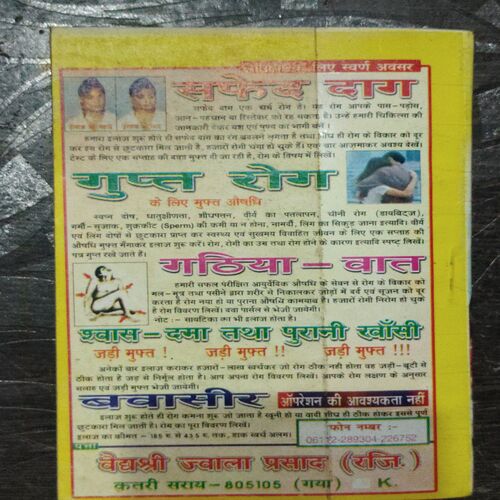 लिए स्वर्ण अवसर
सफेद दाग
सफेद दाग एक चर्म रोग है। यह रोग आपके पास-पड़ोस,
जान-पहचान या रिश्तेदार को रह सकता है। उन्हें हमारी चिकित्सा की
जानकारी देकर यश एवं पुण्य का भागी बनें।
हमारा इलाज शुरू होते ही सफेद दाग का रंग बदलने लगता है तथा शीघ्र ही रोग के विकार को दूर
कर इस रोग से छुटकारा मिल जाती है. हजारों रोगी चंगा हो चुके हैं। एक बार आजमाकर अवश्य देखें।
टेस्ट के लिए एक सप्ताह की दवा मुफ्त दी जा रही है, रोग के विषय में लिखें।
गुप्त रोग
के लिए मुफ्त औषधि
स्वप्न दोष, धातुक्षीणता, शीघ्रपतन, वीर्य का पतलापन, चीनी रोग (डायबिट्ज),
गर्मी-सुजाक, शुक्रकीट (Sperm) की कमी या न होना, नामर्दी, लिंग का सिकुड़ जाना इत्यादि। वीर्य
एवं लिंग दोषों से छुटकारा प्राप्त कर स्वास्थ्य एवं सुखमय विवाहित जीवन के लिए एक सप्ताह की
औषधि मुफ्त मँगाकर इलाज शुरू करें। रोग, रोगी का उम्र तथा रोग होने के कारण इत्यादि स्पष्ट लिखें।
पत्र गुप्त रखे जाते हैं।
गठिया-वात
हमारी सफल परीक्षित आयुर्वेदिक औषधि के सेवन से रोग के विकार को
मल-मुत्र तथा पसीने द्वारा शरीर से निकालकर जोड़ों में दर्द एवं सुजन को दूर
करता है रोग नया हो या पुराना औषधि कामयाब है। हजारों रोगी निरोग हो चुके
हैं रोग विवरण लिखें। दवा पार्सल से भेजी जायेगी।
नोट :- सायटिका का भी इलाज होता है।
श्वास-दमा तथा पुरानी खाँसी
जड़ी मुफ्त ! जड़ी मुफ्त !! जड़ी मुफ्त !!!
अनेकों बार इलाज कराकर हजारों-लाख खर्चकर जो रोग ठीक नहीं होता वह जड़ी-बूटी से
ठीक होता है जड़ से निर्मूल होता है। आप अपना रोग विवरण लिखें। आपके रोग लक्षण के अनुसार
सलाह एवं जड़ी मुफ्त भेजी जायेगी।
बवासीर ऑपरेशन की आवश्यकता नहीं
इलाज शुरू होते ही रोग कमना शुरू जो जाता है खूनी हो या वादी शीघ्र ही ठीक होकर इससे पूर्ण
छुटकारा मिल जाती है। रोग का पूरा विवरण लिखें।
इलाज का कीमत - 185 रु से 435 रु तक, डाक खर्च अलग।
फोन नम्बर :-
06112-289304-226752
पता
वैद्यश्री ज्वाला प्रसाद (रजि.)
कतरी सराय-805105 (गया) K.